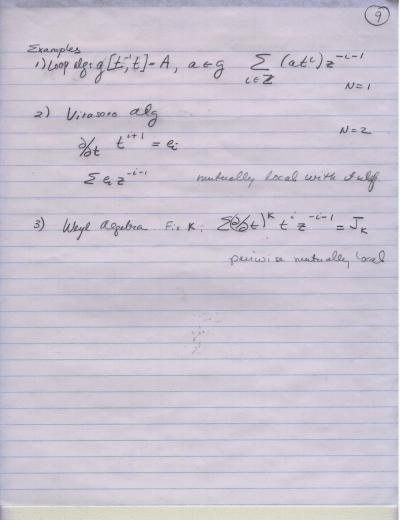 9
Examples
1) Loop alg: g[t⁻¹, t] = A, a ∈ g   ∑_{i∈Z} (atⁱ) z^{-i-1}
N=1
2) Virasoro alg
N=2
∂/∂t t^{i+1} = e_i
∑ e_i z^{-i-1}   mutually local with itself
3) Weyl Algebra Fix K: ∑(∂/∂t)^K tⁱ z^{-i-1} = J_K
pairwise mutually local